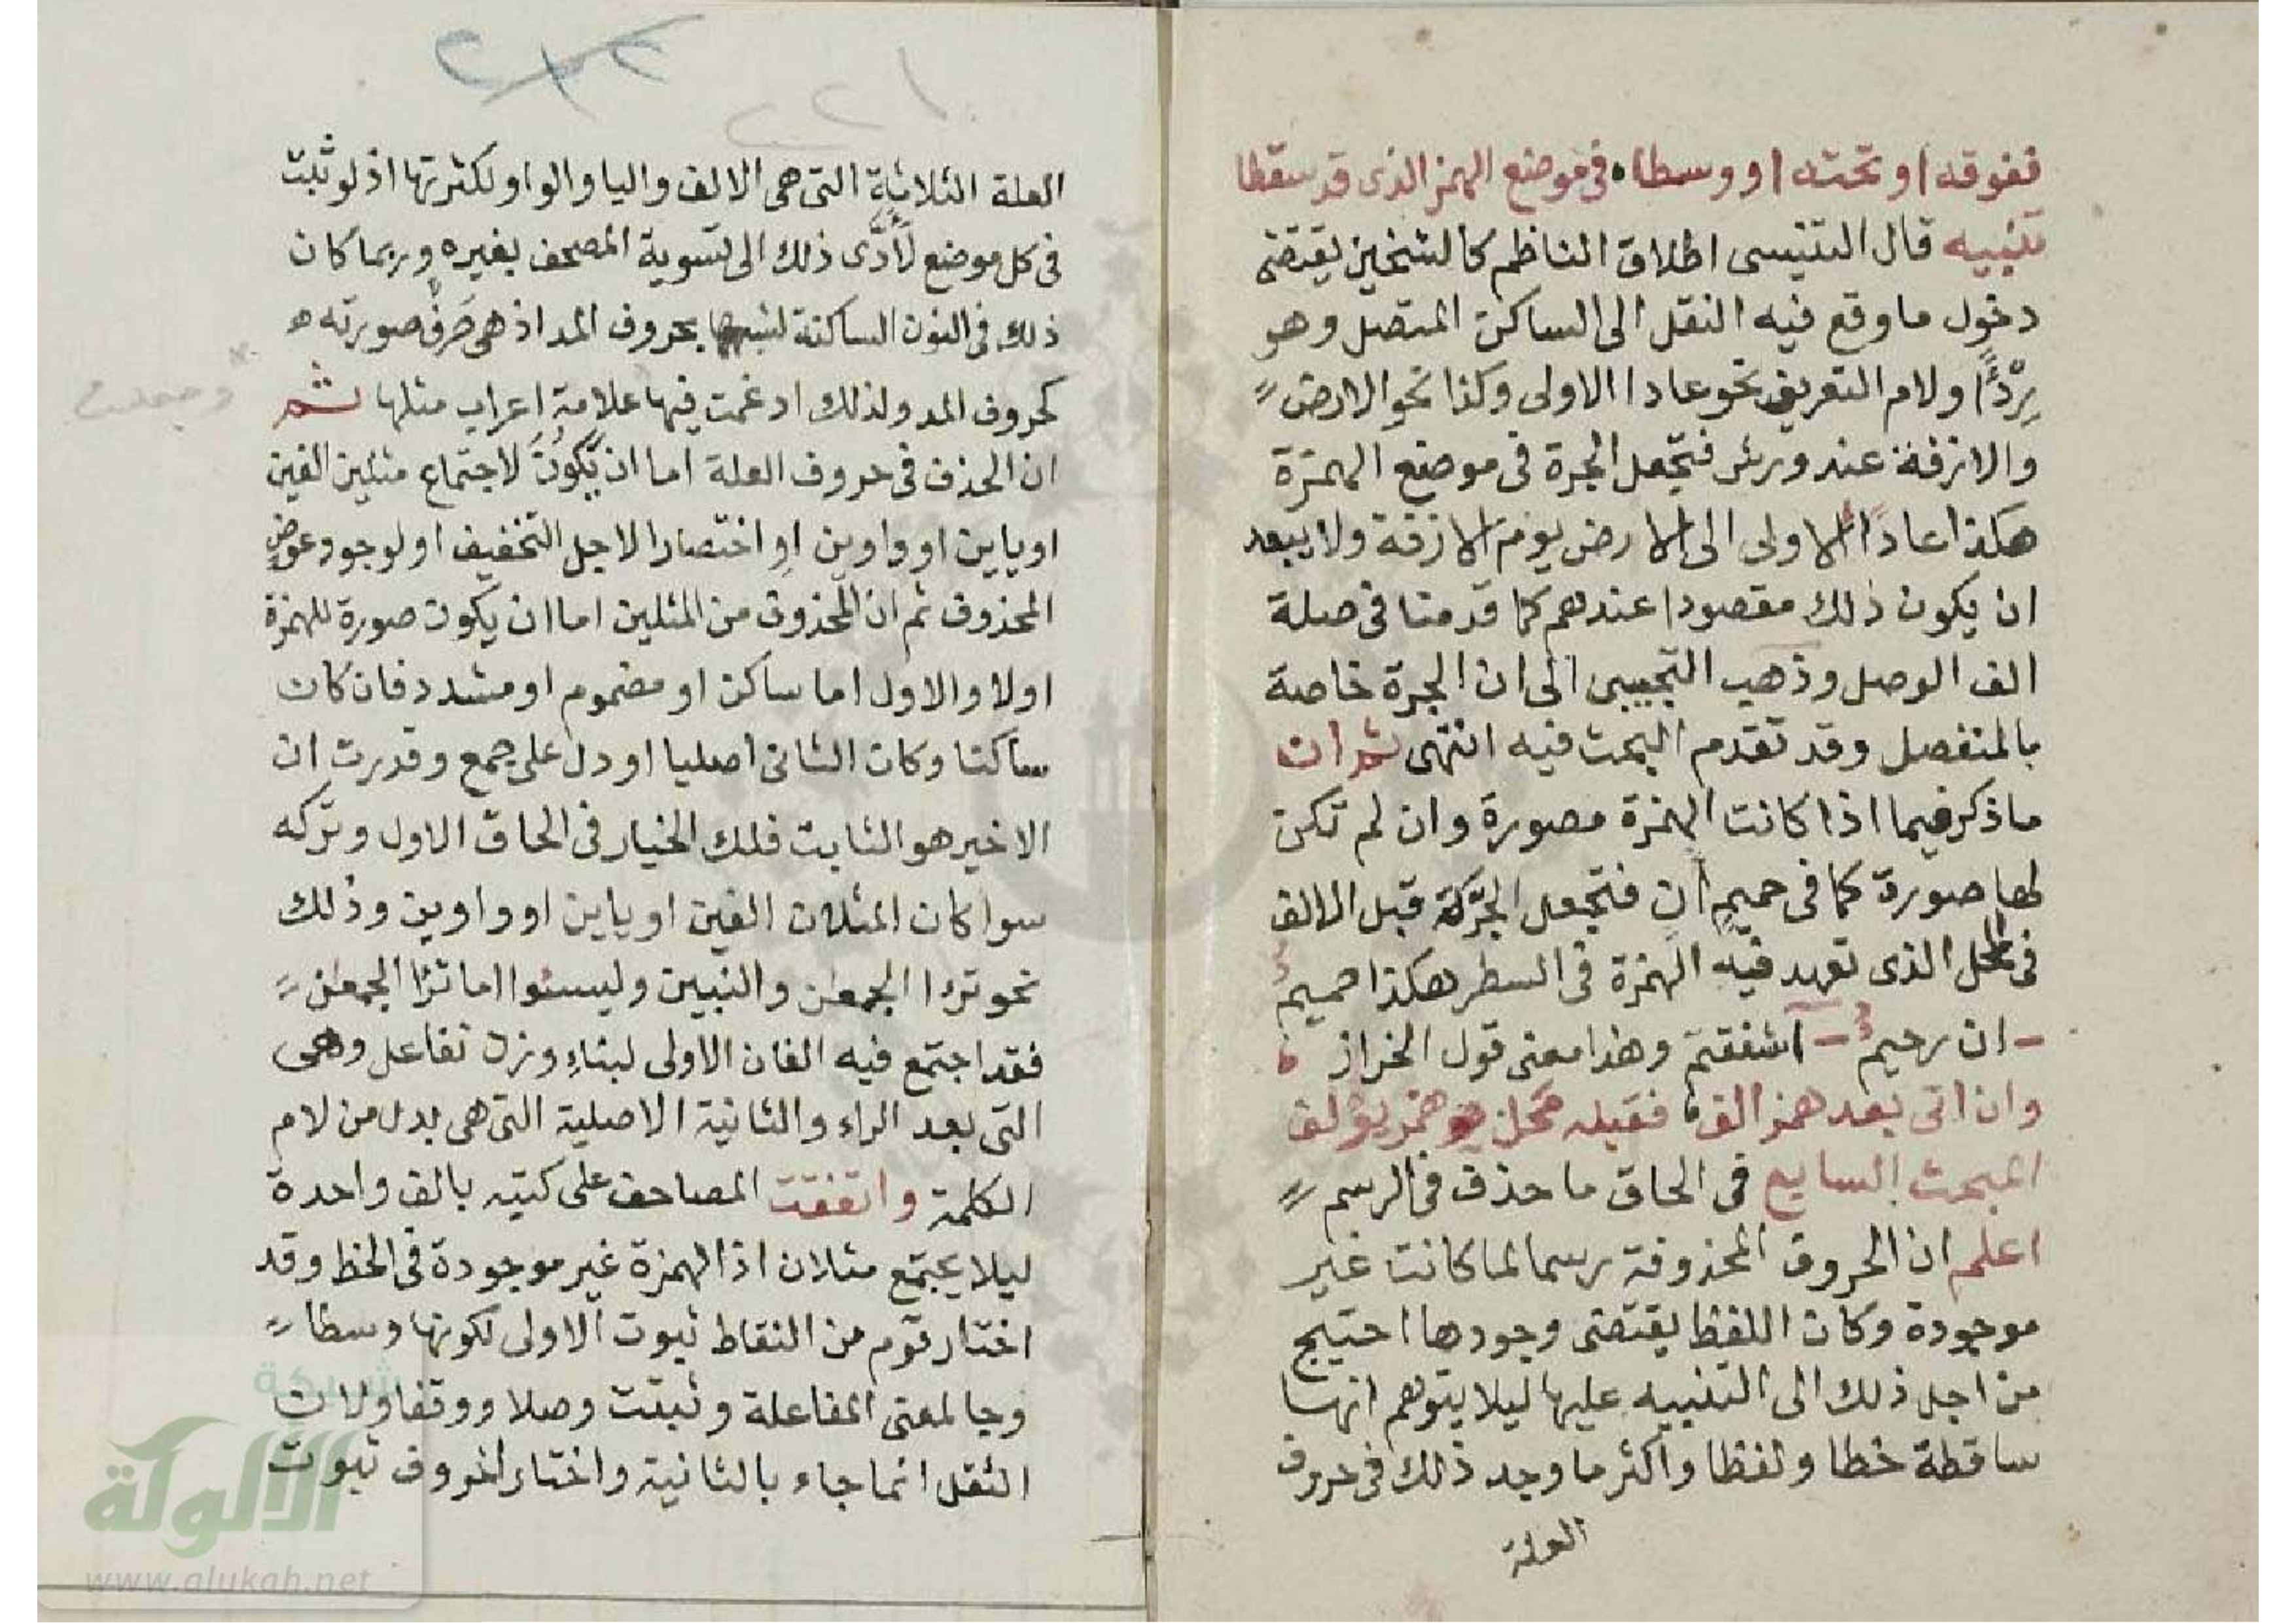 ففوقه او تحته او وسطا ٥ فى موضع الهمز الذى قد سقطا
تنبيه قال التنيسى اطلاق الناظم كالشيخين يقتضى
دخول ما وقع فيه النقل الى الساكن المتصل وهو
رِدْءًا ولام التعريف نحو عادا الاولى وكذا نحو الارض
والازفة عند ورش فتجعل الجرة فى موضع الهمزة
هكذا عادًا الاولى الى الارض يوم الازفة ولا يبعد
ان يكون ذلك مقصودا عندهم كما قدمنا فى صلة
الف الوصل وذهب التجيبى الى ان الجرة خاصة
بالمنفصل وقد تقدم البحث فيه انتهى ثم ان
ما ذكر فيما اذا كانت الهمزة مصورة وان لم تكن
لها صورة كما فى حميمٍ انٍ فتجعل الجرة قبل الالف
فى المحل الذى تعهد فيه الهمزة فى السطر هكذا حميم
ان رحيم اشفقتم وهذا معنى قول الخراز
وان اتى بعد همز الف فقبله محل همز يؤلف
المبحث السابع فى الحاق ما حذف فى الرسم
اعلم ان الحروف المحذوفة رسما لما كانت غير
موجودة وكان اللفظ يقتضى وجودها احتيج
من اجل ذلك الى التنبيه عليها ليلا يتوهم انها
ساقطة خطا ولفظا واكثر ما وجد ذلك فى حروف
العلة
٢١٢
٢٢١
العلة الثلاثة التى هى الالف واليا والواو لكثرتها اذ لو ثبت
فى كل موضع لَأَدَّى ذلك الى تسوية المصحف بغيره وربما كان
ذلك فى النون الساكنة لشبهها بحروف المد اذ هى حرف صورته
كحروف المد ولذلك ادغمت فيها علامة اعراب مثلها ثم
وجعلت
ان الحذف فى حروف العلة اما ان يَكُونَ لاجتماع مثلين الفين
او ياين او واوين او اختصارا لاجل التخفيف او لوجود عوضٍ
المحذوف ثم ان المحذوف من المثلين اما ان يكون صورة للهمزة
اولا والاول اما ساكن او مضموم او مشدد فان كان
ساكنا وكان الثانى اصليا او دل على جمع وقدرت ان
الاخير هو الثابت فلك الخيار فى الحاق الاول وتركه
سوا كان المثلان الفين او ياين او واوين وذلك
نحو ترا الجمعن والنبين وليسئوا اما ترا الجمعن
فقد اجتمع فيه الفان الاولى لبناءِ وزن تفاعل وهى
التى بعد الراء والثانية الاصلية التى هى بدل من لام
الكلمة واتفقت المصاحف على كتبه بالف واحدة
ليلا يجتمع مثلان اذ الهمزة غير موجودة فى الخط وقد
اختار قوم من النقاط ثبوت الاولى لكونها وسطا
وجا لمعنى المفاعلة وثبتت وصلا ووقفا ولان
الثقل انما جاء بالثانية واختار اخروف ثبوت
شبكة
الألوكة
www.alukah.net